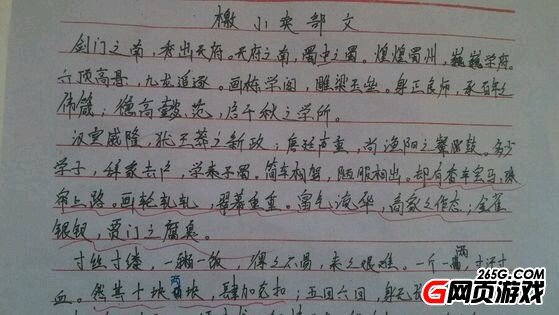 檄小卖部文
剑门之南，秀出天府。天府之南，蜀中之蜀，煌煌蜀州，巍巍学府。
六顶高悬，九龙追逐。画栋学阁，雕梁玉垒。身正良师，承百年之
伟箴；德高，启千秋之学所。
汉室威隆，犹王莽之新政；唐廷声重，尚渔阳之鼙鼓。多少
学子，辞家去户，学来于蜀。简车相驾，陋服相出。却有香车宝马，
上路。画轮轧轧，翠幕重重。富气流华，高家之作态；金雀
银钗，贾门之腐臭。
寸丝寸缕，一粥一饭，得之不易，来之艰难。一个一滴，寸汗寸
血。然其十块百块，肆加克扣；五回六回，身无
265G.COM
网页游戏